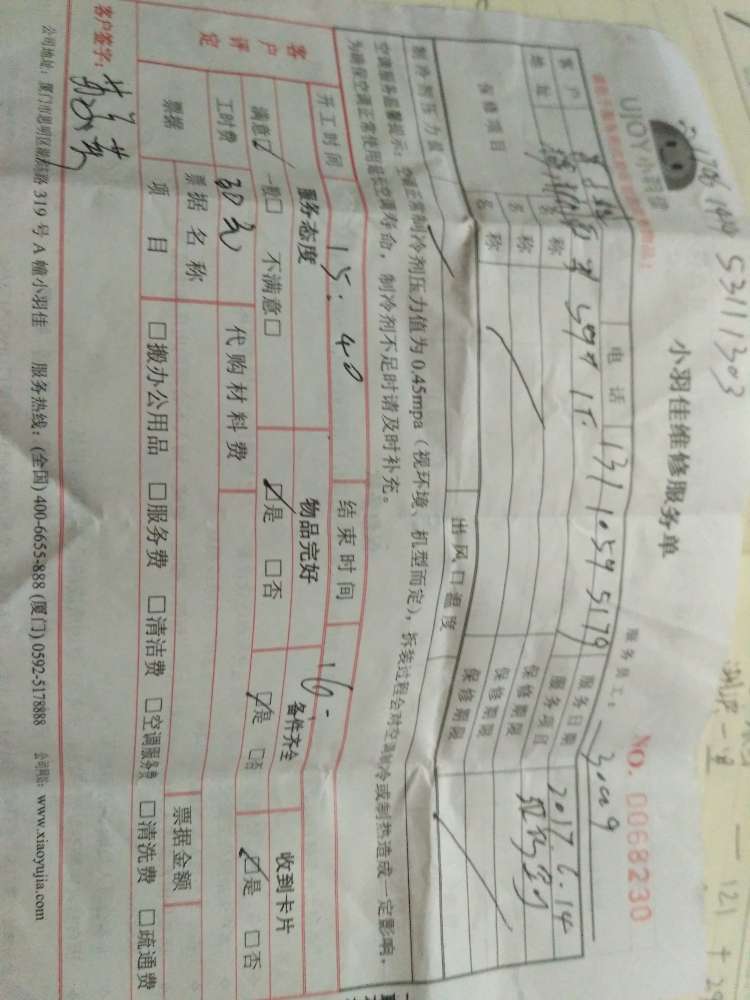 53111303
UJOY小羽佳
小羽佳维修服务单
No. 0068230
服务员工:
客户
电话
131 1059 5179
服务日期
2017.6.14
地址
服务项目
保修项目
名称
保修期限
名称
保修期限
名称
保修期限
制冷剂压力值
出风口温度
空调服务温馨提示:空调正常制冷剂压力值为0.45mpa(视环境、机型而定),拆装过程会对空调制冷或制热造成一定影响,
为确保空调正常使用延长空调寿命,制冷剂不足时请及时补充。
开工时间
15:40
结束时间
16-
客户评定
服务态度
物品完好
备件齐全
收到卡片
满意☑ 一般□ 不满意□
☑是 □否
☑是 □否
☑是 □否
工时费
30元
代购材料费
票据
票据名称
票据金额
项目
□搬办公用品 □服务费 □清洁费 □空调服务费 □清洗费 □疏通费
客户签字:
公司地址:厦门市思明区湖滨南路319号A幢小羽佳 服务热线:(全国)400-6655-888 (厦门)0592-5178888 公司网站:www.xiaoyujia.com